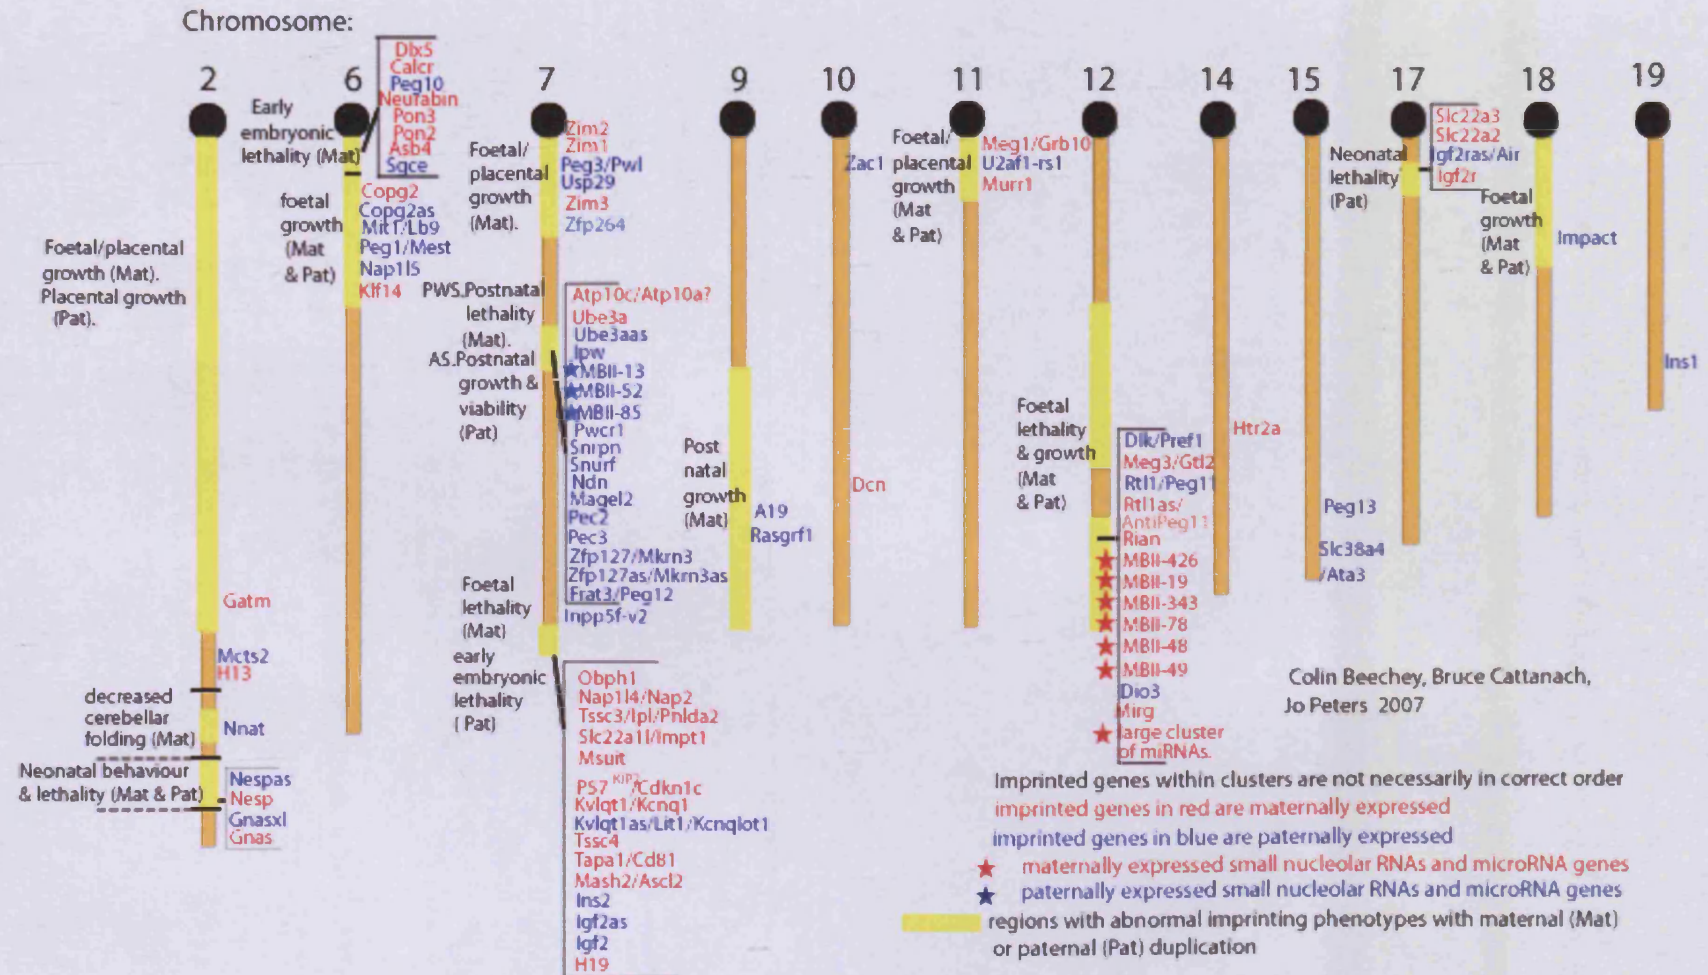 Chromosome:
2
6
7
9
10
11
12
14
15
17
18
19
Foetal/placental
growth (Mat).
Placental growth
(Pat).
Gatm
Mcts2
H13
decreased
cerebellar
folding (Mat)
Nnat
Neonatal behaviour
& lethality (Mat & Pat)
Nespas
Nesp
Gnasxl
Gnas
Early
embryonic
lethality (Mat)
Dlx5
Calcr
Peg10
Neurabin
Pon3
Pon2
Asb4
Sgce
foetal
growth
(Mat
& Pat)
Copg2
Copg2as
Mit1/Lb9
Peg1/Mest
Nap1l5
Klf14
Foetal/
placental
growth
(Mat).
Zim2
Zim1
Peg3/Pwl
Usp29
Zim3
Zfp264
PWS.Postnatal
lethality
(Mat).
AS.Postnatal
growth &
viability
(Pat)
Atp10c/Atp10a?
Ube3a
Ube3aas
Ipw
MBII-13
MBII-52
MBII-85
Pwcr1
Snrpn
Snurf
Ndn
Magel2
Pec2
Pec3
Zfp127/Mkrn3
Zfp127as/Mkrn3as
Frat3/Peg12
Inpp5f-v2
Foetal
lethality
(Mat)
early
embryonic
lethality
( Pat)
Obph1
Nap1l4/Nap2
Tssc3/Ipl/Phlda2
Slc22a1l/Impt1
Msuit
P57 KIP2/Cdkn1c
Kvlqt1/Kcnq1
Kvlqt1as/Lit1/Kcnqlot1
Tssc4
Tapa1/Cd81
Mash2/Ascl2
Ins2
Igf2as
Igf2
H19
Post
natal
growth
(Mat)
A19
Rasgrf1
Zac1
Dcn
Foetal/
placental
growth
(Mat
& Pat)
Meg1/Grb10
U2af1-rs1
Murr1
Foetal
lethality
& growth
(Mat
& Pat)
Dlk/Pref1
Meg3/Gtl2
Rtl1/Peg11
Rtl1as/
AntiPeg11
Rian
MBII-426
MBII-19
MBII-343
MBII-78
MBII-48
MBII-49
Dio3
Mirg
large cluster
of miRNAs.
Htr2a
Peg13
Slc38a4
/Ata3
Neonatal
lethality
(Pat)
Slc22a3
Slc22a2
Igf2ras/Air
Igf2r
Foetal
growth
(Mat
& Pat)
Impact
Ins1
Colin Beechey, Bruce Cattanach,
Jo Peters 2007
Imprinted genes within clusters are not necessarily in correct order
imprinted genes in red are maternally expressed
imprinted genes in blue are paternally expressed
maternally expressed small nucleolar RNAs and microRNA genes
paternally expressed small nucleolar RNAs and microRNA genes
regions with abnormal imprinting phenotypes with maternal (Mat)
or paternal (Pat) duplication